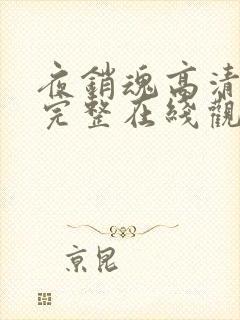 夜銷魂高清
完整在綫觀
京昆